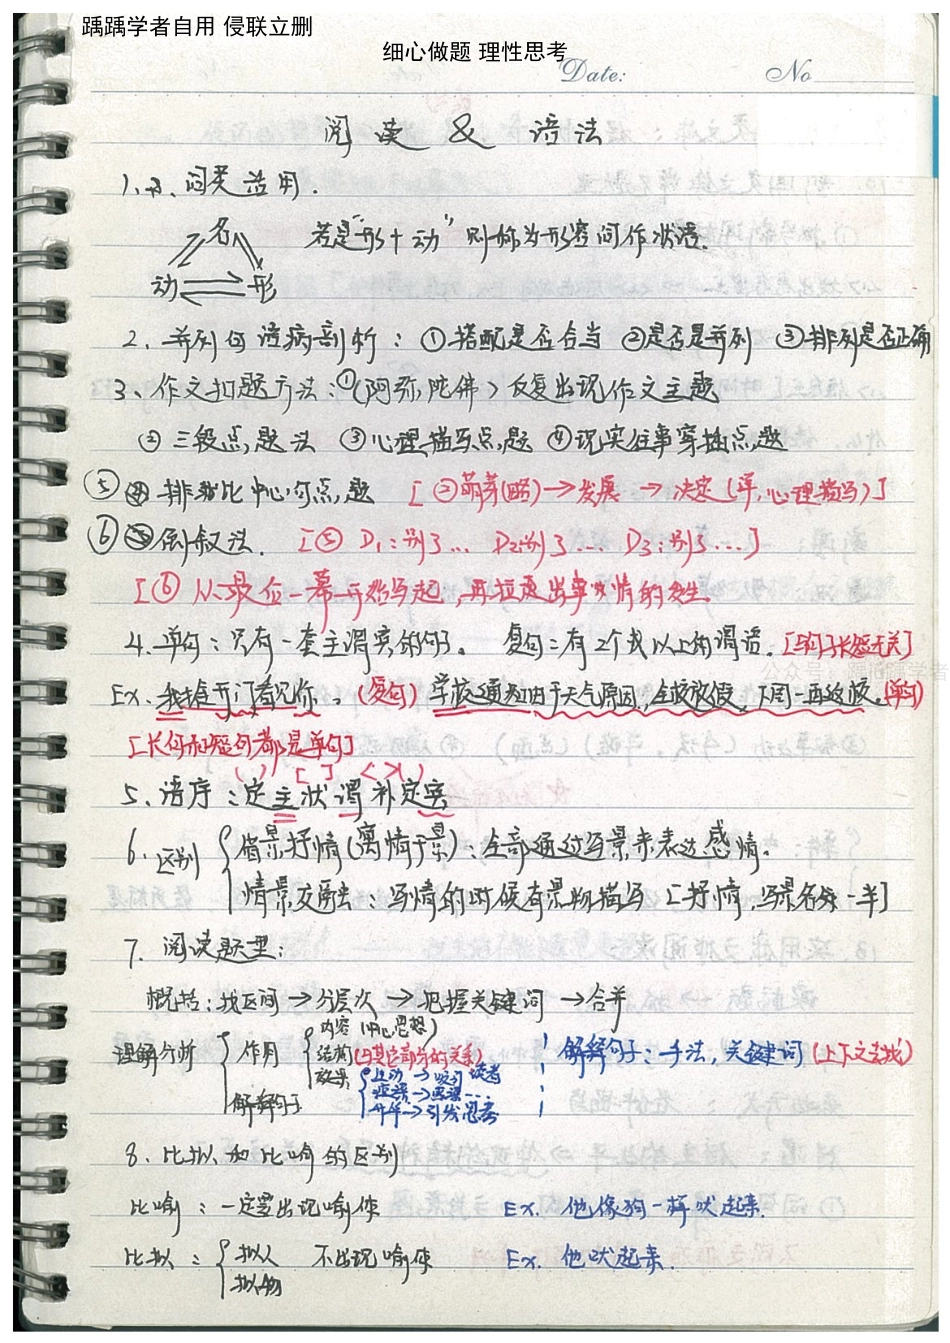 踽踽学者自用 侵联立删
细心做题 理性思考
Date: No
阅读 & 语法
1、词类活用.
名
动 形 若是"形+动" 则称为形容词作状语.
2、并列句语病剖析：①搭配是否合当 ②是否是并列 ③排列是否正确
3、作文扣题方法：①〈阿弥陀佛〉反复出现作文主题
② 三段点题法 ③心理描写点题 ④现实往事穿插点题
⑤ 排比中心句点题 [②萌芽(略)→发展 →决定(详,心理描写)]
⑥ 倒叙法. [⑤ D1:别了... D2:别了... D3:别了...]
[⑥ 从最后一幕开始写起,再反出事情的发生.
4、单句：只有一套主谓宾的句子。 复句：有2个或以上的谓语.[与句子长短无关]
公众号：踽踽学者
Ex. 我推开门看见你。(复句) 学校通知由于天气原因,全校放假,下周一再返校。(单句)
[长句和短句都是单句]
( ) [ ] < > ( )
5、语序：定主状谓补定宾
6、区别 借景抒情(寓情于景)：全部通过写景来表达感情。
情景交融法：写情的时候有景物描写 [抒情,写景各处一半]
7、阅读题型：
概括：找区间→分层次→把握关键词→合并
内容(中心思想)
理解分析 作用 结构(与其它部分的关系) 解释句子、手法,关键词(上下文去找)
效果 生动→吸引读者
开年→引发思考
解释句子
8、比拟和比喻的区别
比喻：一定要出现喻体 Ex. 他像狗一样吠起来.
比拟： 拟人 不出现喻体 Ex. 他吠起来.
拟物